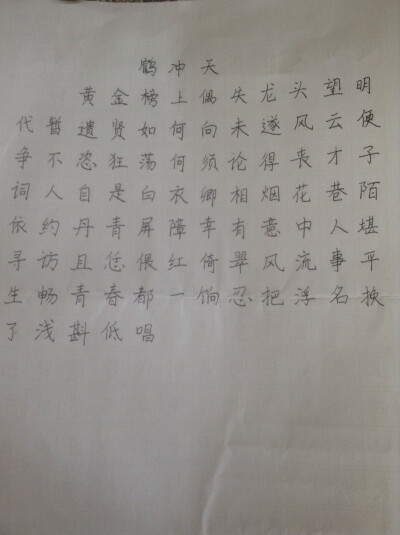 鹤冲天
黄金榜上偶失龙头望明
代暂遗贤如何向未遂风云便
争不恣狂荡何须论得丧才子
词人自是白衣卿相烟花巷陌
依约丹青屏障幸有意中人堪
寻访且恁偎红倚翠风流事平
生畅青春都一饷忍把浮名换
了浅斟低唱